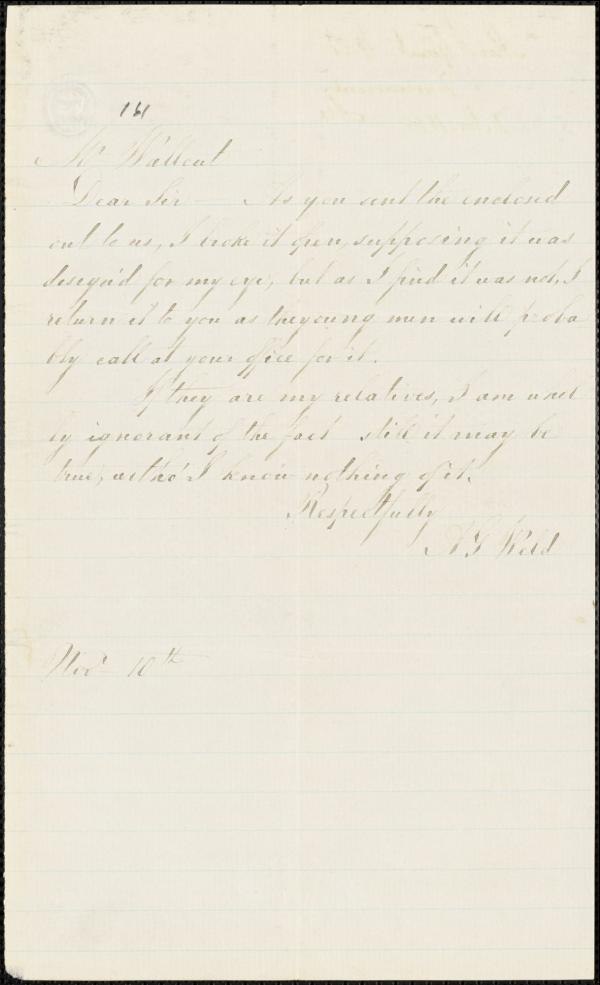 161
Mr Wallcut
Dear Sir - As you sent the enclosed
out to us, I broke it open, supposing it was
design'd for my eye, but as I find it was not, I
return it to you as the young men will proba
bly call at your office for it.
If they are my relatives, I am whol
ly ignorant of the fact still it may be
true, altho' I know nothing of it.
Respectfully
A G Weld
Nov 10th